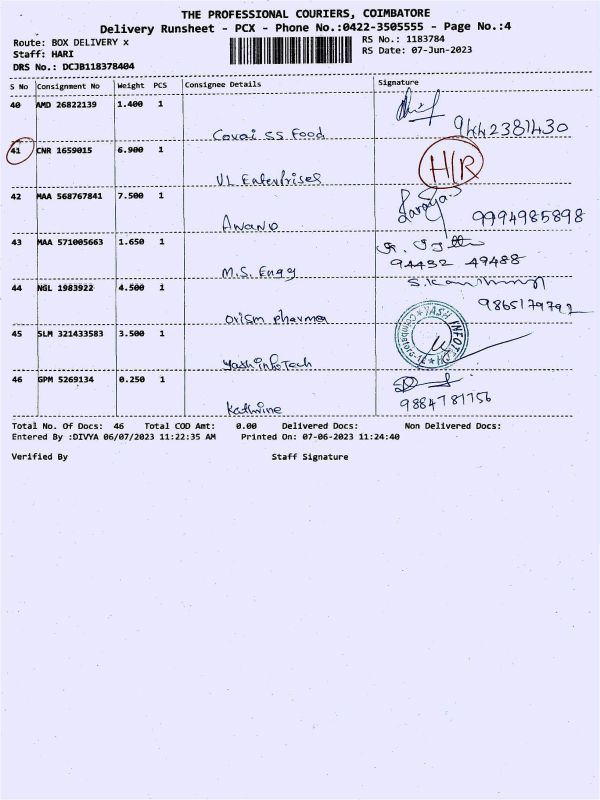 THE PROFESSIONAL COURIERS, COIMBATORE
Delivery Runsheet - PCX - Phone No.:0422-3505555 - Page No.:4
Route: BOX DELIVERY x
RS No.: 1183784
Staff: HARI
RS Date: 07-Jun-2023
DRS No.: DCJB118378404
S No Consignment No Weight PCS Consignee Details Signature
40 AMD 26822139 1.400 1
Covai SS Food 9442381430
41 CNR 1659015 6.900 1 H/R
VL Enterprises
42 MAA 568767841 7.500 1
Anand 9994985898
43 MAA 571005663 1.650 1
M.S. Engg 94432 49488
44 NGL 1983922 4.500 1
Orism pharma 9865179792
45 SLM 321433583 3.500 1 YASH INFOTECH
Yash infoTech
46 GPM 5269134 0.250 1
Kathrine 9884781756
Total No. Of Docs: 46 Total COD Amt: 0.00 Delivered Docs: Non Delivered Docs:
Entered By :DIVYA 06/07/2023 11:22:35 AM Printed On: 07-06-2023 11:24:40
Verified By Staff Signature